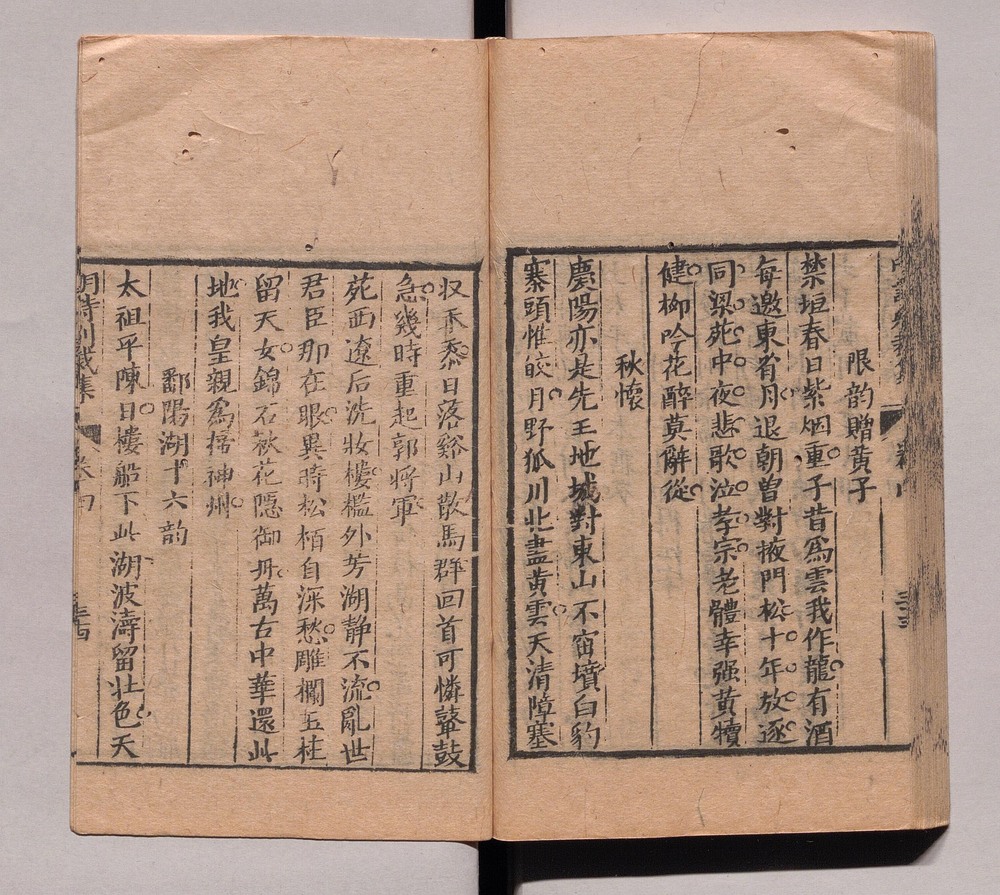 限韵贈黄子
禁垣春日紫烟重子昔爲雲我作龍有酒
每邀東省月退朝曽對掖門松十年放逐
同梁苑中夜悲歌泣孝宗老體幸强黄犢
健柳吟花醉莫辭從
秋懷
慶陽亦是先王地城對東山不窋墳白豹
寨頭惟皎月野狐川北盡黄雲天清障塞
收禾黍日落谿山散馬群回首可憐鼙鼓
急幾時重起郭將軍
苑西遼后洗妝樓檻外芳湖静不流亂世
君臣那在眼異時松栢自深愁雕欄玉柱
留天女錦石秋花隠御舟萬古中華還此
地我皇親爲掃神州
鄱陽湖十六韵
太祖平陳日樓船下此湖波濤留壯色天
明詩別裁集
卷四